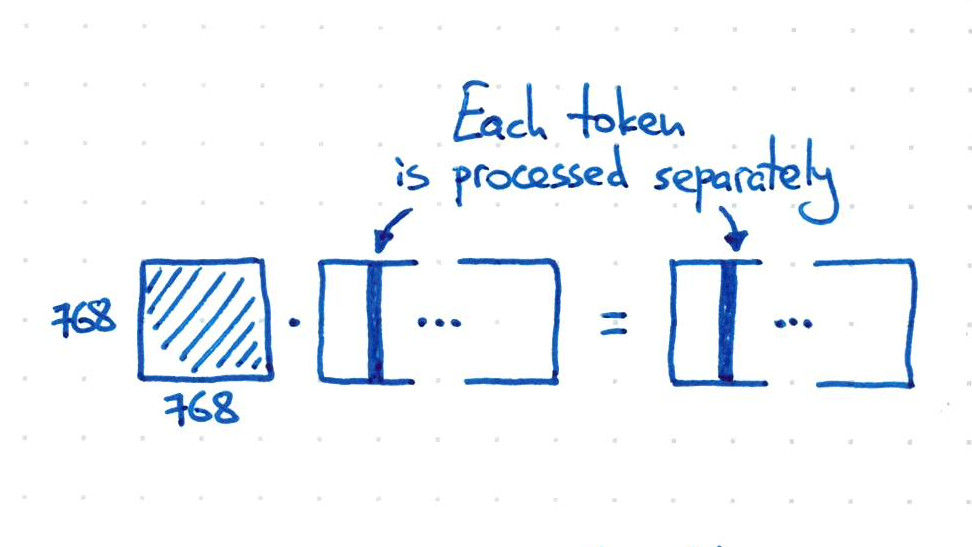 Each token
is processed separately
768
• ... = ...
768